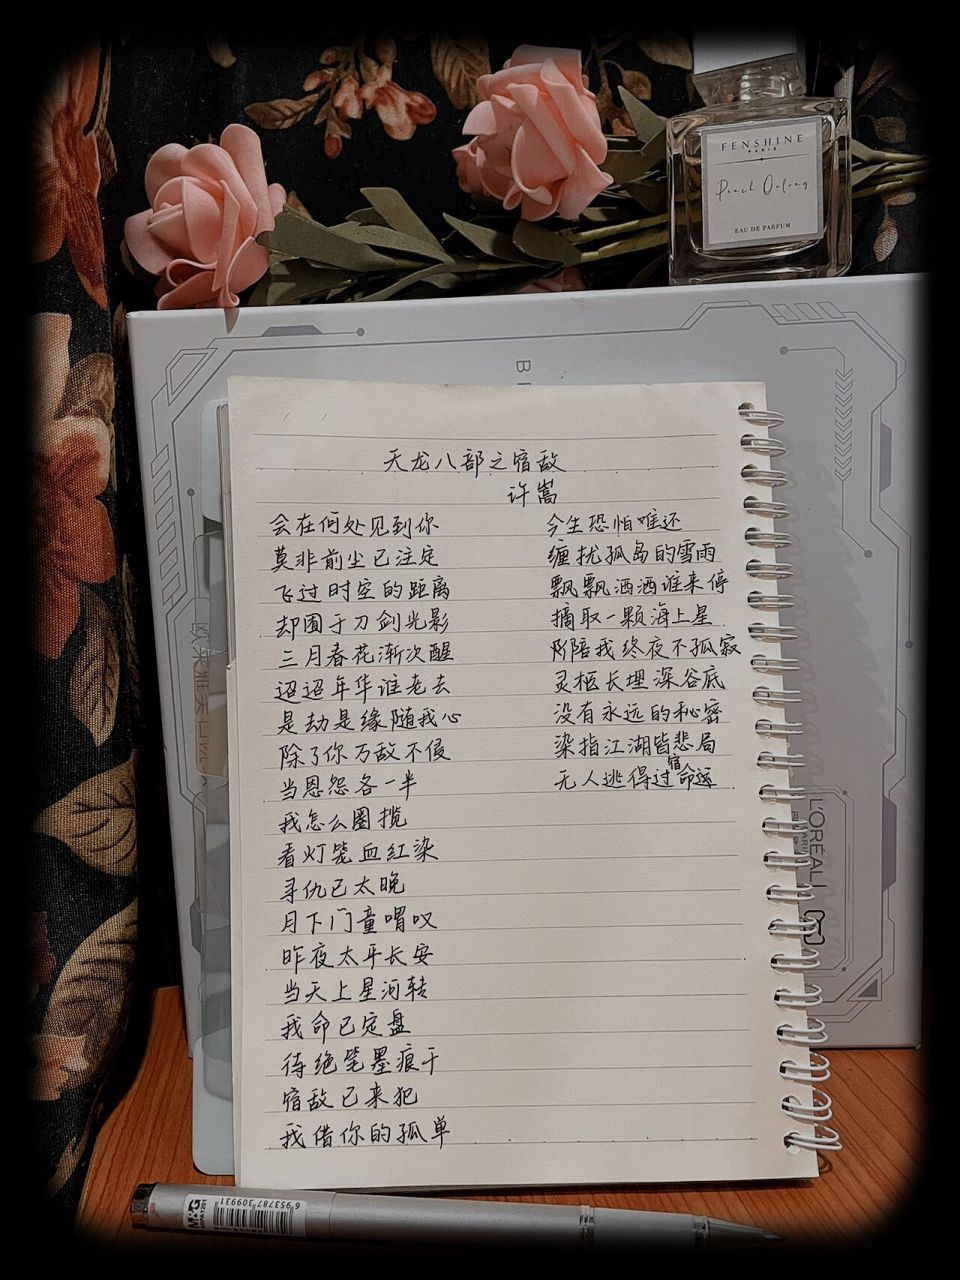 FENSHINE
PARIS
Peach Oolong
EAU DE PARFUM
天龙八部之宿敌
许嵩
会在何处见到你
莫非前尘已注定
飞过时空的距离
却困于刀剑光影
三月春花渐次醒
迢迢年华谁老去
是劫是缘随我心
除了你万敌不侵
当恩怨各一半
我怎么圈揽
看灯笼血红染
寻仇已太晚
月下门童喟叹
昨夜太平长安
当天上星河转
我命已定盘
待绝笔墨痕干
宿敌已来犯
我借你的孤单
今生恐怕难还
缠扰孤岛的雪雨
飘飘洒洒谁来停
摘取一颗海上星
陪我终夜不孤寂
灵柩长埋深谷底
没有永远的秘密
染指江湖皆悲局
无人逃得过宿命运
L'ORÉAL
PARIS
M&G
6 953787 309931